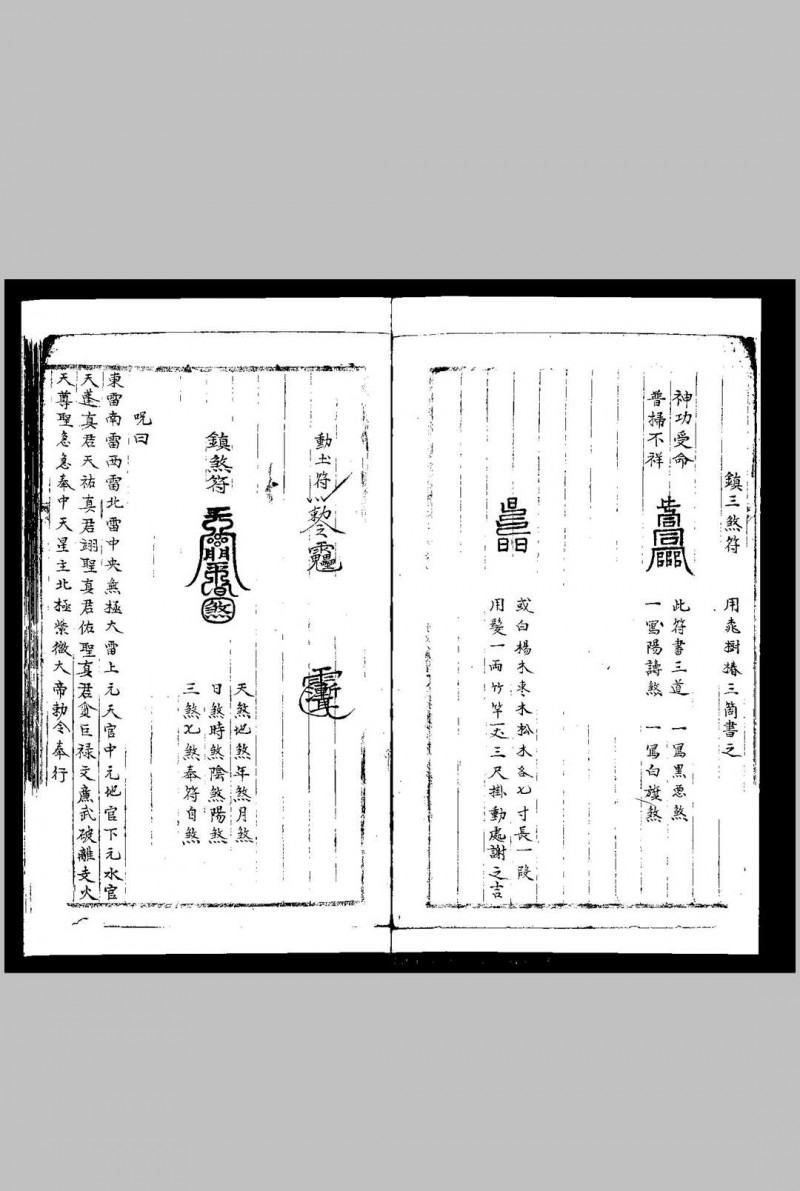 鎮三煞符　用桃樹椿三箇書之
神功受命
普掃不祥
此符書三道　一寫黑惡煞
一寫陽　煞　一寫白旗煞
或白楊木棗木松木各七寸長一段
用髮一兩竹竿一丈三尺掛動處謝之吉
動土符
鎮煞符
天煞地煞年煞月煞
日煞時煞陰煞陽煞
三煞七煞奉符自煞
呪曰
東雷南雷西雷北雷中央無極大雷上元天官中元地官下元水官
天蓬真君天祐真君翊聖真君佑聖真君貪巨禄文廉武破離支火
天尊聖急急奉中天星主北極紫微大帝勅令奉行